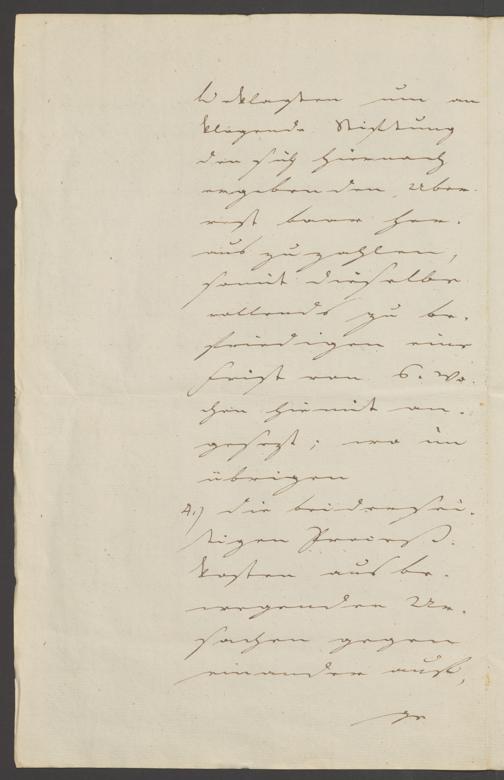 beklagten um an
klagende Stiftung
den sich hiernach
ergebenden Über-
rest baar her-
aus zu zahlen,
somit dieselbe
vollends zu be-
friedigen eine
Frist von 6. Wo-
chen hiemit an-
gesezt; wo im
übrigen
4.) die beidersei-
tigen Proceß-
kosten aus be-
wegenden Ur-
sachen gegen
einander auf,
ge